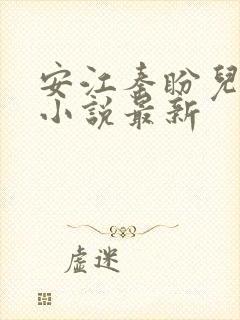 安江秦盼兒
小說最新
虛迷